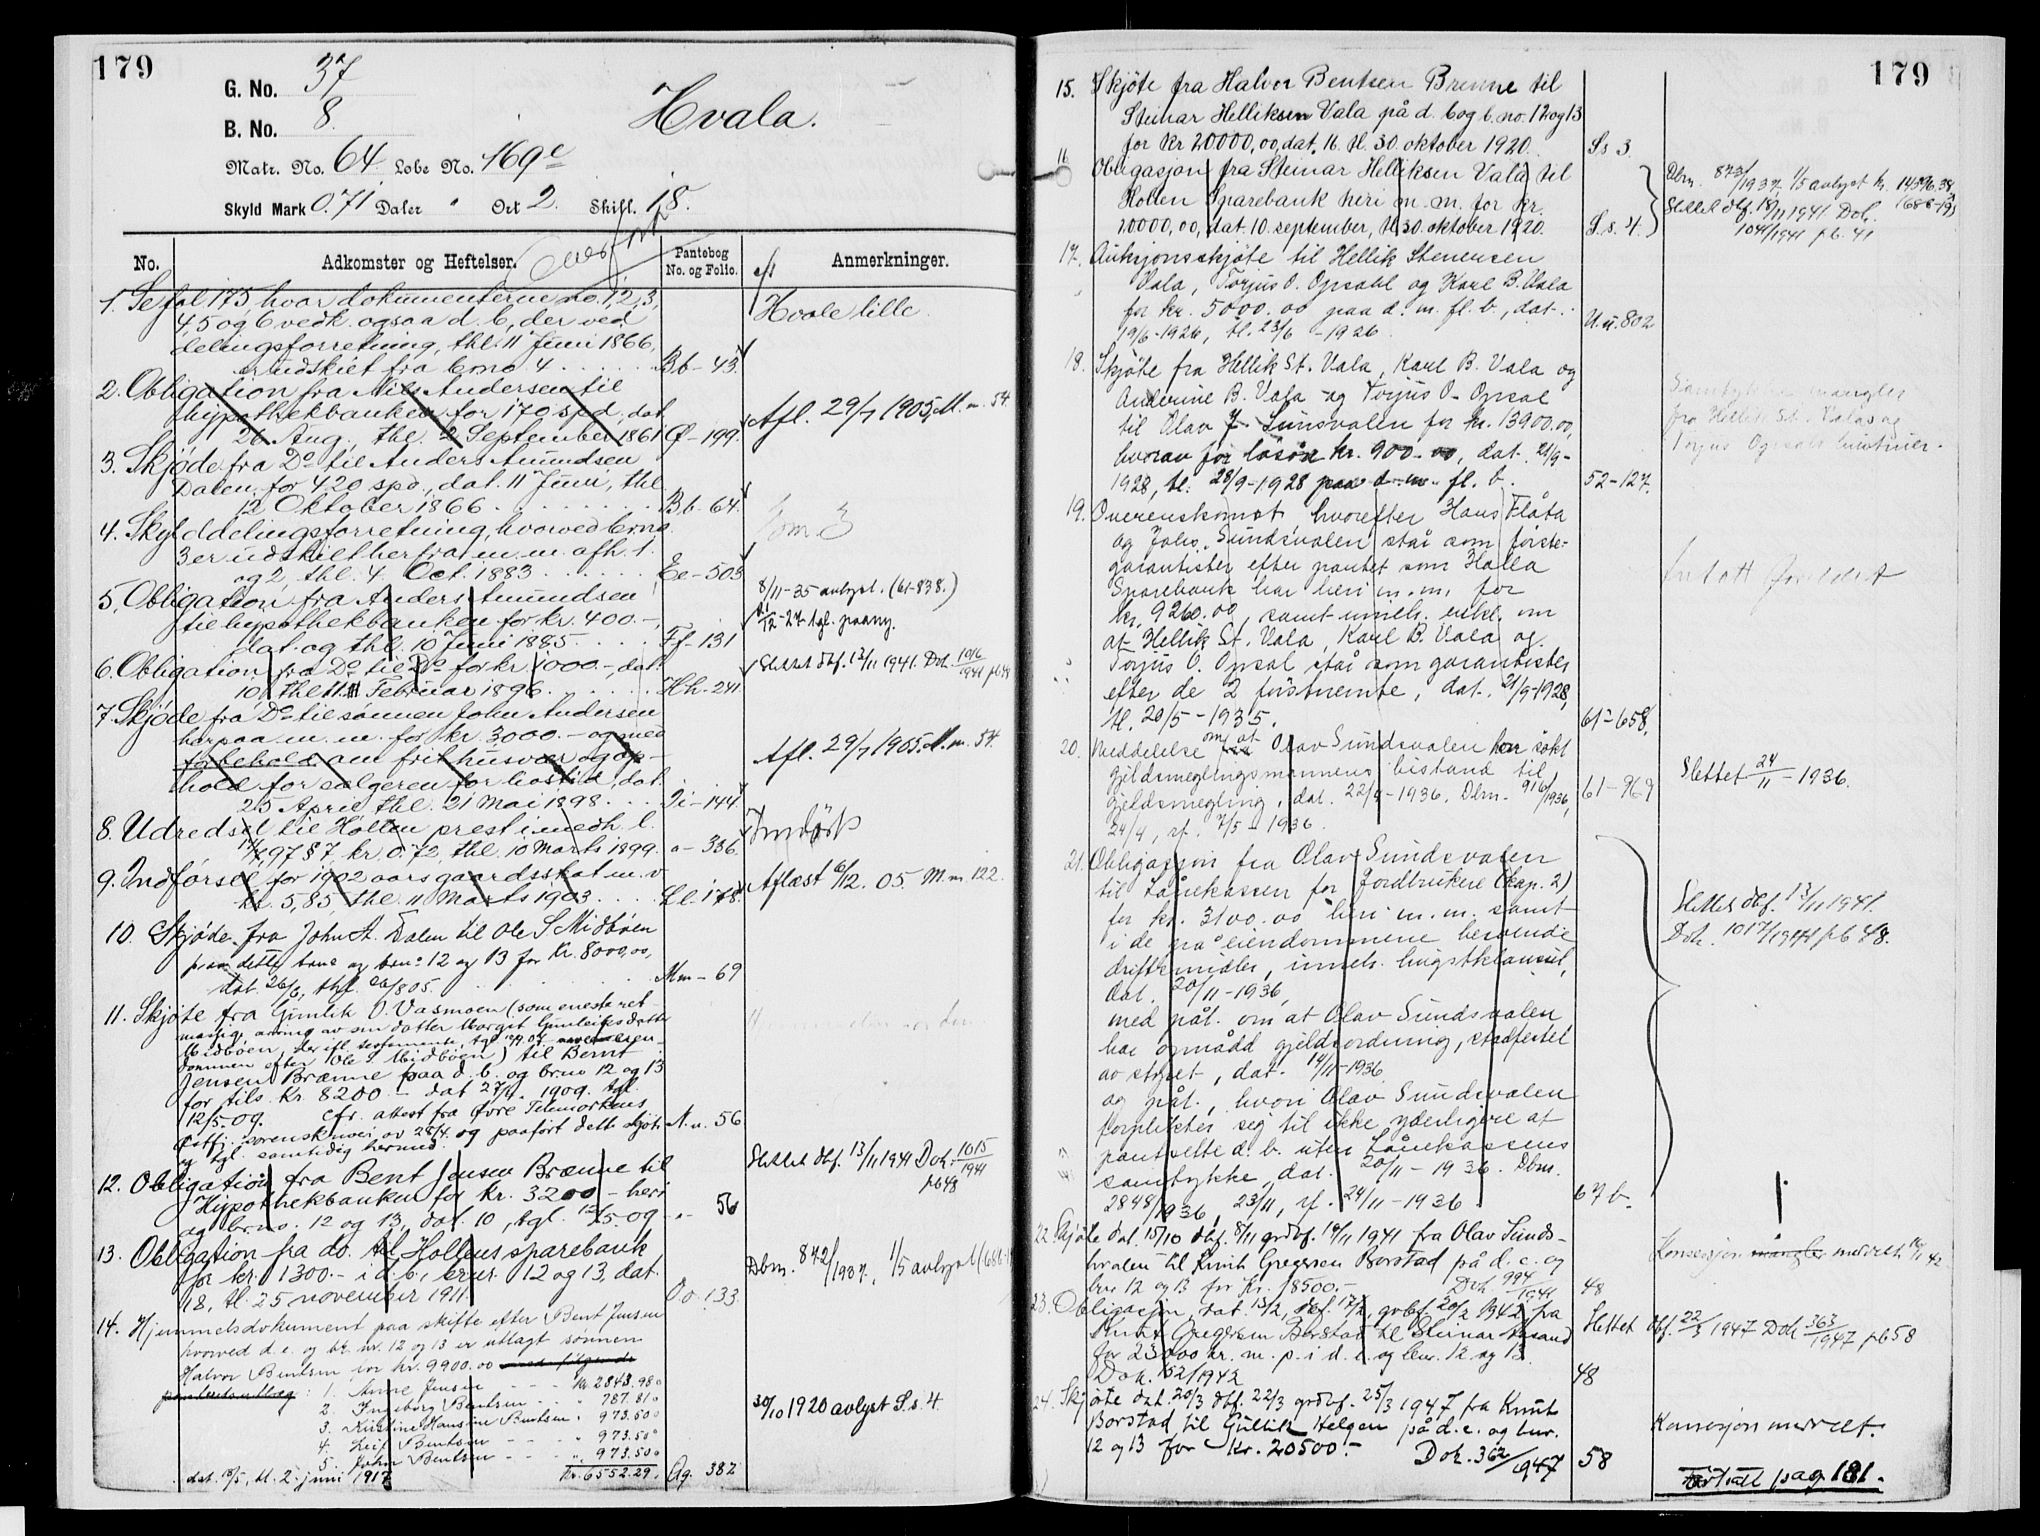 179
G. No. 37
B. No. 8.
Hvala.
Matr. No. 64 Lobe No. 169c
Skyld Mark 0.71 Daler " Ort 2. Skill. 18.
No. Adkomster og Heftelser. Pantebog No. og Folio. Anmerkninger.
1. Se fol 175, hvor dokumenterne no. 1, 2, 3,
4 5 og 6 vedk. ogsaa d. b., der ved
delingsforretning, thl. 11 Juni 1866,
er udskilt fra bno 4 Bb - 43.
Hvale lille.
2. Obligation fra Nils Andersen til
hypothekbanken for 170 spd, dat.
26 Aug., thl. 2 September 1861 Q - 199.
Afl. 29/7 1905, M. n. 54.
3. Skjøde fra Do til Anders Amundsen
Dalen, for 420 spd., dat. 11 Juni, thl.
12 Oktober 1866 Bb. 64.
4. Skylddelingsforretning, hvorved bno
3 er udskilt herfra m. m. afh. 1.
og 2, thl. 4 Oct. 1883 Ee - 503
5. Obligation fra Anders Amundsen
til hypothekbanken for kr. 400.-,
dat. og thl. 10 Juni 1885 Ff - 131
8/11-35 avlyst. (61-838.)
6. Obligation fra Do til Do for kr 1000.-, dat.
10, thl 11 Februar 1896. Hh - 241.
Slettet dbf. 13/11 1941. Dok. 1016/1941 pb 48
7. Skjøde fra Do til sønnen John Andersen
herpaa m. m. for kr 3000.- og med
forbehold om frit husvær og op-
hold for sælgeren for livstid, dat.
25 April, thl. 21 Mai 1898. Ii - 144.
Afl. 29/7 1905. M. n. 54.
8. Udredsel til Holten prest i medh. l.
14/7 97 § 7, kr 0.72, thl. 10 Marts 1899. " - 336.
9. Indførsel for 1902 aars gaardsskat m. v.
kr. 5,85, thl. 11 Marts 1903 Ll. 178.
Aflæst 6/12. 05. M. n. 122.
10. Skjøde fra John A. Dalen til Ole S Midbøen
paa dette bno og bno 12 og 13 for kr. 8000,00,
dat. 26/6, thl. 26/8 05. Mm - 69
11. Skjøte fra Gunlik O. Vasmoen (som eneste ret-
mæssig arving av sin datter Margit Gunleiksdatter
Midbøen, der ifl. testamente, tgl.
dommen efter Ole S. Midbøen) til Bernt
Jensen Brænne paa d. b. og br. no 12 og 13
for tils. Kr. 8200 - dat 27/4. 1909. tgl.
12/5-09. cfr. attest fra Øvre Telemarkens
distr. sorenskriver av 28/4. og paaført dette skjøte
og tgl. samtidig hermed. N. n. 56
12. Obligation fra Bent Jensen Brænne til
Hypothekbanken for kr. 3200 - heri
og brno. 12 og 13, dat. 10, tgl. 12/5-09 " - 56
Slettet dbf. 13/11 1941 Dok. 1015/1941
pb 48
13. Obligation fra do. til Hollens sparebank
for kr. 1300.- i d. b., brnr. 12 og 13, dat.
18, tl. 25 november 1911 Oo. 133.
Dbm. 842/1937, 1/5 avlyst
14. Hjemmelsdokument paa skifte efter Bent Jensen
hvorved d. e. og br. nr. 12 og 13 er utlagt sønnen
Halvor Bentsen for kr. 9900.00 med følgende
panteutlæg: 1. Anne Jensen Kr. 2843.98
2. Ingeborg Bentsen " 787.81
3. Kristine Hansine Bentsen " 973.50
4. Leif Bentsen " 973.50
5. John Bentsen " 973.50
dat. 15/5, tl. 2. juni 1917 Kr. 6552.29. Qq. 382
30/10 1920 avlyst S s. 4.
179
15. Skjøte fra Halvor Bentsen Brenne til
Steinar Helliksen Vala på d. b og b. no. 12 og 13
for kr 20000,00, dat. 16. tl. 30. oktober 1920. Ss 3.
16. Obligasjon fra Steinar Helliksen Vala til
Hollen Sparebank heri m. m. for kr.
20000,00, dat. 10. september, tl. 30. oktober 1920. S.s. 4.
Dbm. 843/1937. 1/5 avlyst kr. 14596,38
Slettet dbf. 18/11 1941 Dok.
1041/1941 pb. 41
17. Auksjonsskjøte til Hellik Stenersen
Vala, Torjus O. Opsahl og Karl B. Vala
for kr. 5000.00 paa d. m. fl. b., dat.
19/6-1926, tl. 23/6 - 1926. U. u. 802
18. Skjøte fra Hellik St. Vala, Karl B. Vala og
Anderine B. Vala og Torjus O. Opsal
til Olav J. Sunsvalen for kr. 13900.00,
hvorav for løsøre kr. 900.00, dat. 21/9-
1928, tl. 28/9-1928 paa d. m. fl. b. 52-127.
Samtykke mangler
fra Hellik St. Valas og
Torjus Opsals hustruer.
19. Overenskomst hvorefter Hans Flåta
og Johs. Sundsvalen står som første-
garantister efter pantet som Holla
Sparebank har heri m. m. for
kr. 9260.00, samt innels. erkl. om
at Hellik St. Vala, Karl B. Vala og
Torjus O. Opsal står som garantister
efter de 2 førstnevnte, dat. 21/9-1928,
tl. 20/5 - 1935. 61-658.
20. Meddelelse om at Olav Sundsvalen har søkt
gjeldsmeglingsmannens bistand til
gjeldsmegling, dat. 22/4-1936. Dbm. 916/1936,
24/4, rf. 7/5-1936. 61-969
Slettet 24/11 - 1936.
21. Obligasjon fra Olav Sundsvalen
til Lånekassen for Jordbrukere (kap. 2)
for kr. 3100.00 heri m. m. samt
i de på eiendommene beroende
driftsmidler, innels. lingstklausul,
dat. 20/11-1936,
med påt. om at Olav Sundsvalen
har opnådd gjeldsordning, stadfestet
av styret, dat. 14/11-1936
og påt., hvori Olav Sundsvalen
forplikter sig til ikke yderligere at
pantsette d. b. uten Lånekassens
samtykke, dat. 20/11 - 1936. Dbm.
2848/1936, 23/11, rf. 24/11-1936 67 b.
Slettet dbf. 13/11 1941.
Dok. 1017/1941 pb 48.
22. Skjøte dat 15/10 dbf. 8/11 grdbf. 14/11 1941 fra Olav Sunds-
hvalen til Knut Gregersen Borstad på d. e. og
bnr 12 og 13 for Kr. 18500.- Dok 994/1941 48
Konsesjon mangler
23. Obligasjon, dat 13/2, dbf. 17/2, grdbf. 20/2 1942 fra
Knut Gregersen Borstad til Steinar
for 23000 kr. m. p. i d. e. og bnr. 12 og 13.
Dok. 152/1942 48
Slettet dbf. 22/3 1947 Dok 363/1947 pb 58
24. Skjøte dat. 20/3 dbf. 22/3 grdbf. 25/3 1947 fra Knut
Borstad til Gullik Helgen på d. e. og bnr.
12 og 13 for Kr. 20500.- Dok. 362/1947 58
Fortsatt pag 181.